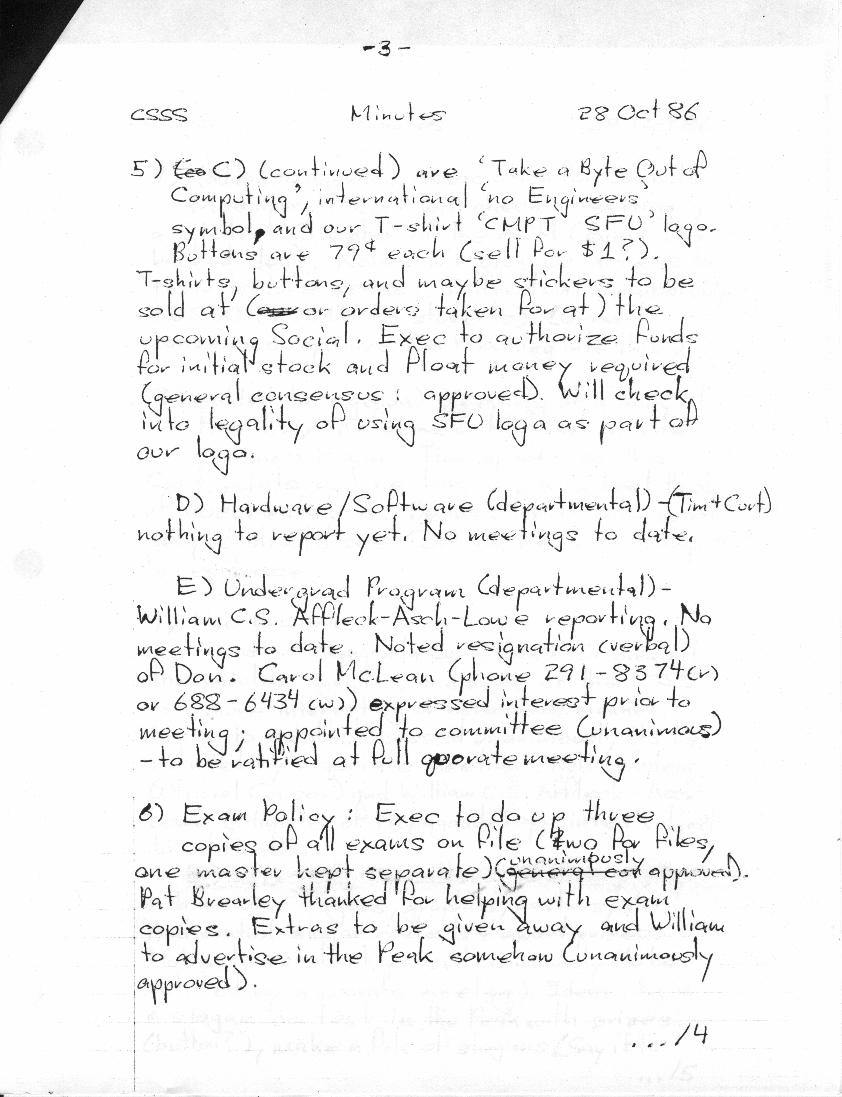 -3-
CSSS Minutes 28 Oct 86
5) C) (continued) are 'Take a Byte Out of
Computing', international 'no Engineers'
symbol, and our T-shirt 'CMPT SFU' logo.
Buttons are 79¢ each (sell for $1?).
T-shirts, buttons, and maybe stickers to be
sold at (or orders taken for at) the
upcoming Social. Exec to authorize funds
for initial stock and float money required
(general consensus: approved). Will check
into legality of using SFU logo as part of
our logo.
D) Hardware/Software (departmental)-(Tim+Curt)
nothing to report yet. No meetings to date.
E) Undergrad Program (departmental)-
William C.S. Affleck-Asch-Lowe reporting. No
meetings to date. Noted resignation (verbal)
of Don. Carol McLean (phone 291-8374(r)
or 688-6434(w)) expressed interest prior to
meeting; appointed to committee (unanimous)
- to be ratified at full quorate meeting.
6) Exam Policy: Exec to do up three
copies of all exams on file (two for files,
one master kept separate) (unanimously
general con approved).
Pat Brearley thanked for helping with exam
copies. Extras to be given away and William
to advertise in the Peak somehow (unanimously
approved).
.../4